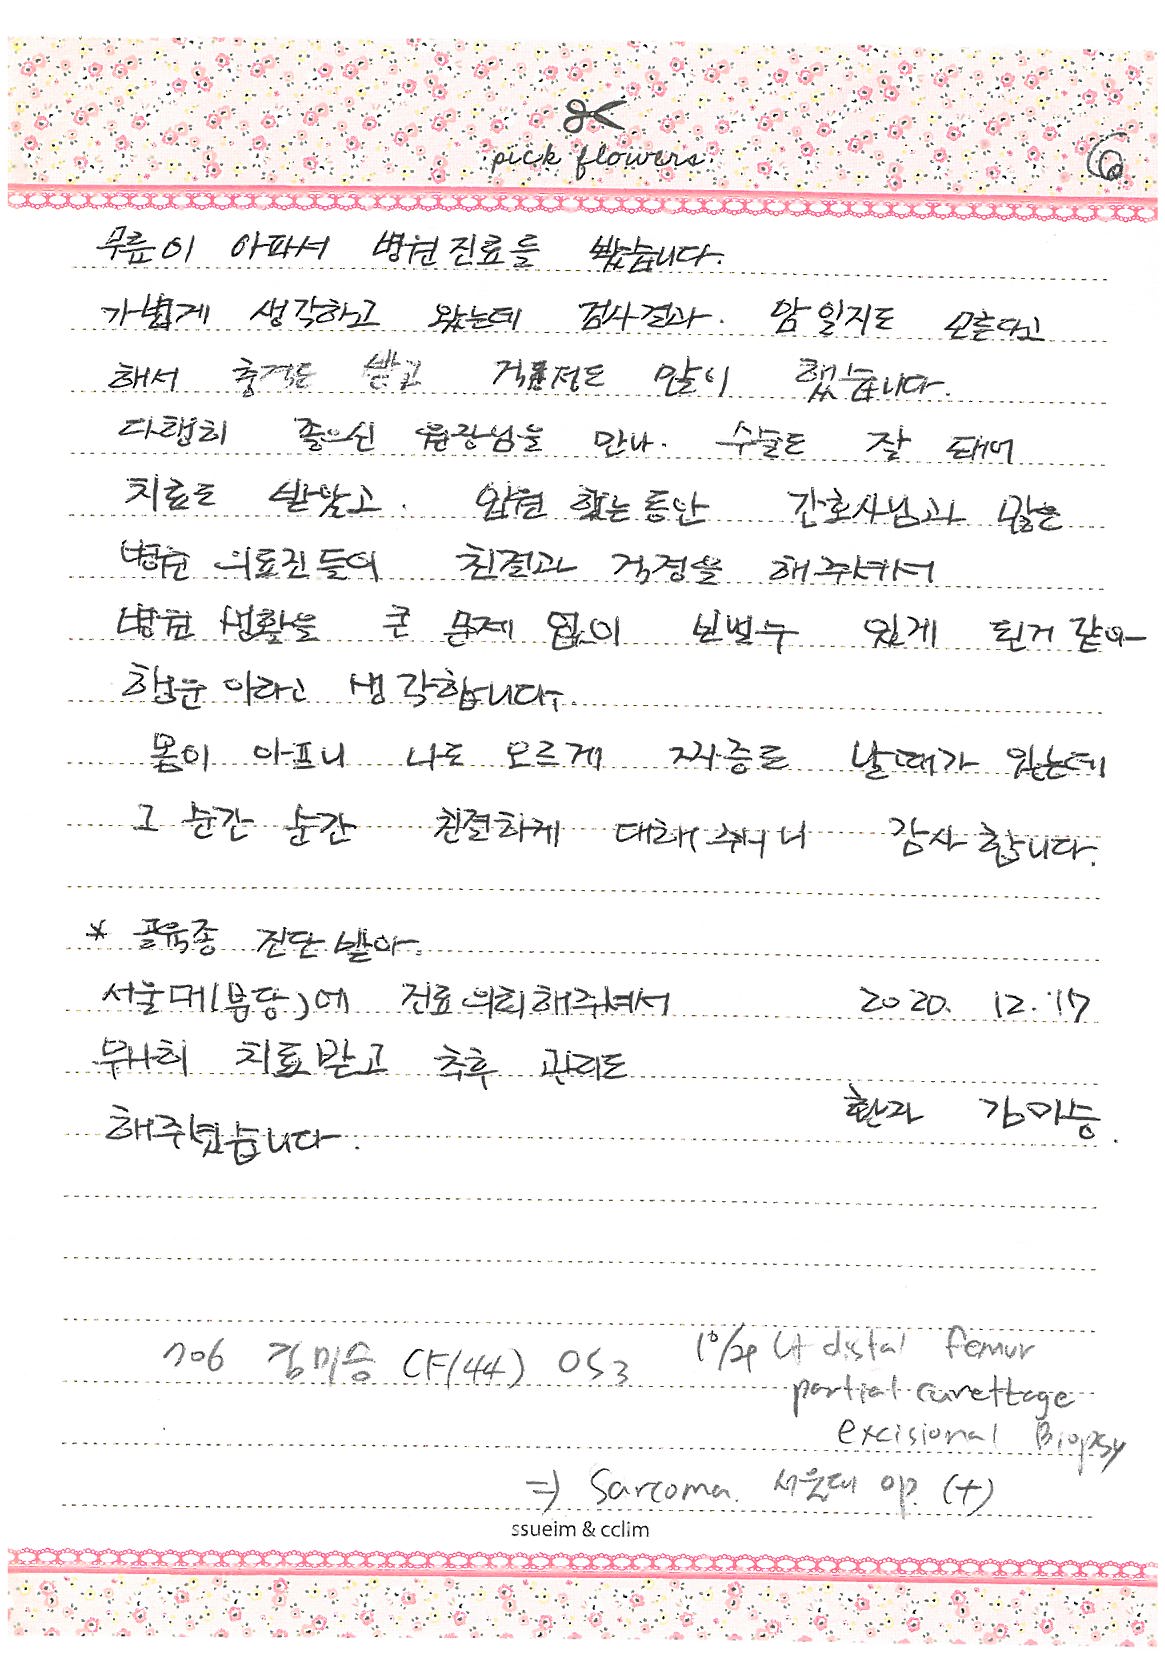 pick flowers
6
무릎이 아파서 병원진료를 봤습니다.
가볍게 생각하고 왔는데 검사결과. 암일지도 모른다고
해서 충격도 받고 걱정도 많이 했습니다.
다행히 좋으신 원장님을 만나. 수술도 잘 돼어
치료도 받았고. 입원 했는동안 간호사님과 많은
병원 의료진들이 친절과 걱정을 해주셔서
병원 생활을 큰 문제 없이 보낼수 있게 된거 같아
행운이라고 생각합니다.
몸이 아프니 나도 모르게 짜증도 날때가 있는데
그 순간 순간 친절하게 대해 줘니 감사합니다.
* 골육종 진단 받아.
서울대(분당)에 진료의뢰해주셔서 2020. 12. 17
무사히 치료받고 추후 관리도
해주셨습니다. 환자 김미승.
706 김미승 (F/44) OS3 10/29 Lt distal femur
partial curettage
excisional Biopsy
=> Sarcoma. 서울대 op. (+)
ssueim & cclim